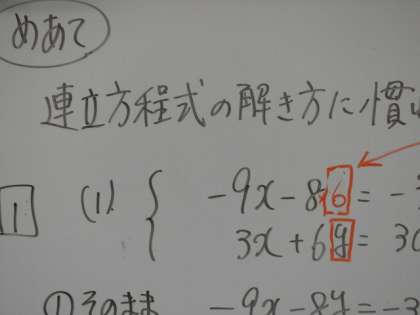 めあて
連立方程式の解き方に慣
1 (1) { -9x-86=-
3x+6y=30
①そのまま -9x-8y=-3